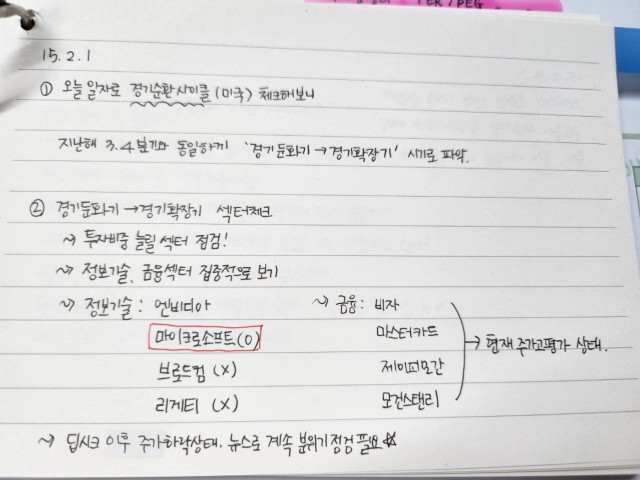 PER/PEG
15.2.1
① 오늘 일자로 경기순환사이클(미국) 체크해보니
지난해 3.4분기와 동일하게 '경기둔화기→경기확장기' 시기로 파악.
② 경기둔화기→경기확장기 섹터체크
~> 투자비중 늘릴 섹터 점검!
~> 정보기술, 금융섹터 집중적으로 보기
~> 정보기술: 엔비디아 ~> 금융: 비자
마이크로소프트(O) 마스터카드 → 현재 주가고평가 상태.
브로드컴 (X) 제이피모간
리게티 (X) 모건스탠리
~> 딥시크 이후 주가하락상태. 뉴스로 계속 분위기점검 필요☆